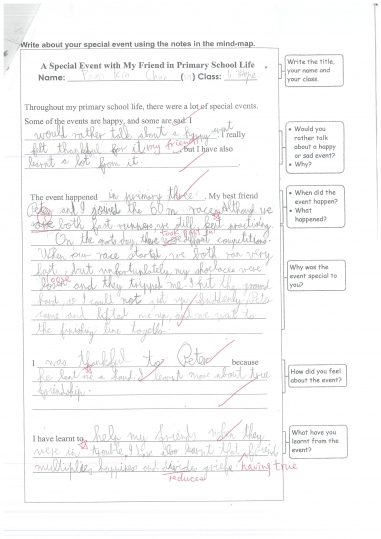 Write about your special event using the notes in the mind-map.
A Special Event with My Friend in Primary School Life
Name: Chan Class:
Write the title, your name and your class.
Throughout my primary school life, there were a lot of special events.
Some of the events are happy, and some are sad. I
would rather talk about a happy event. I really
felt thankful for it, my friend but I have also
learnt a lot from it.
Would you rather talk about a happy or sad event?
Why?
The event happened in primary three. My best friend
Peter and I joined the 60 m race. Although we
are both fast runners, we still kept practising.
On the sports day, there were competitions.
took part in
When our race started we both ran very
fast, but unfortunately, my shoelaces were
loose and they tripped me. I hit the ground
hard, so I could not get up. Suddenly, Peter
came and lifted me up, and we went to
the finishing line together.
When did the event happen?
What happened?
Why was the event special to you?
I was thankful to Peter because
he lent me a hand. I learnt more about true
friendship.
How did you feel about the event?
I have learnt to help my friends when they
were in trouble. I have also learnt that friends
multiplies happiness and divides griefs. having true
reduces
What have you learnt from the event?